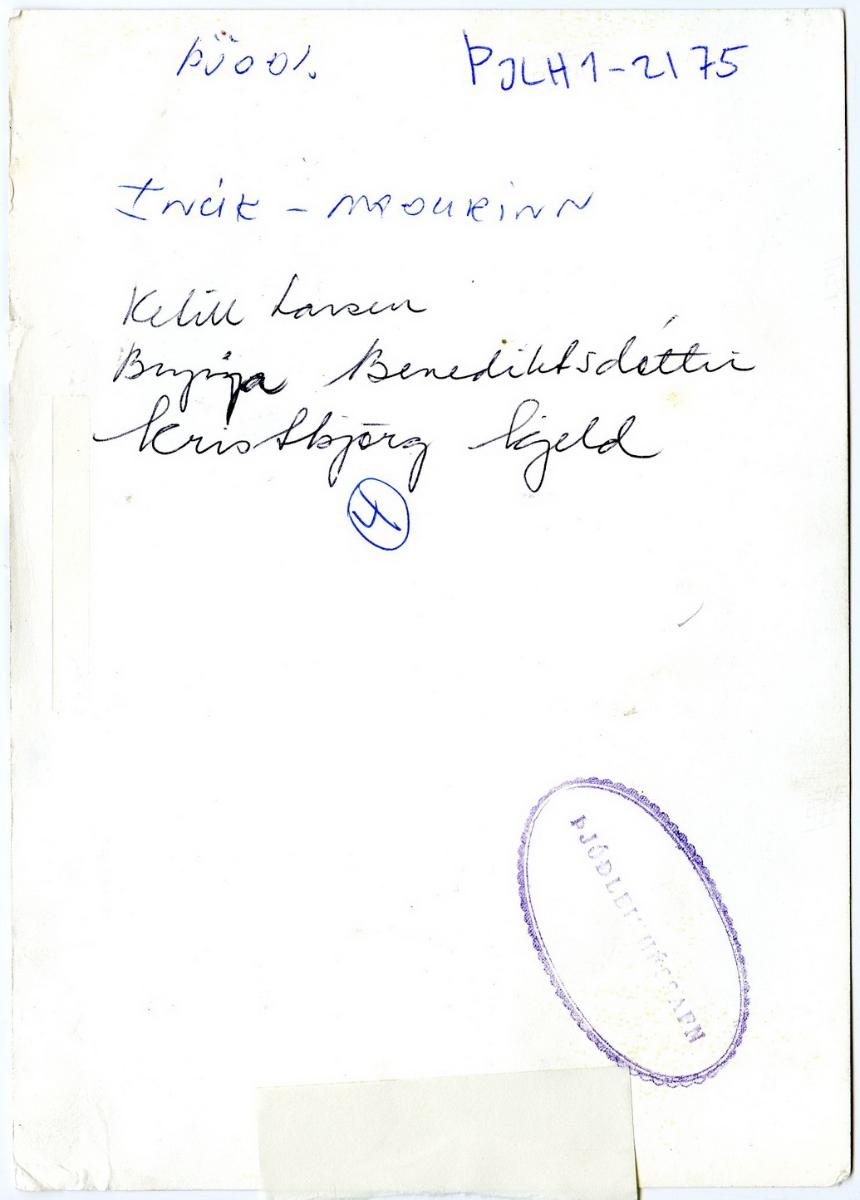 Þjóðl. ÞJLH1-2175
INÚK - MAÐURINN
Ketill Larsen
Brynja Benediktsdóttir
Kristbjörg Kjeld
4